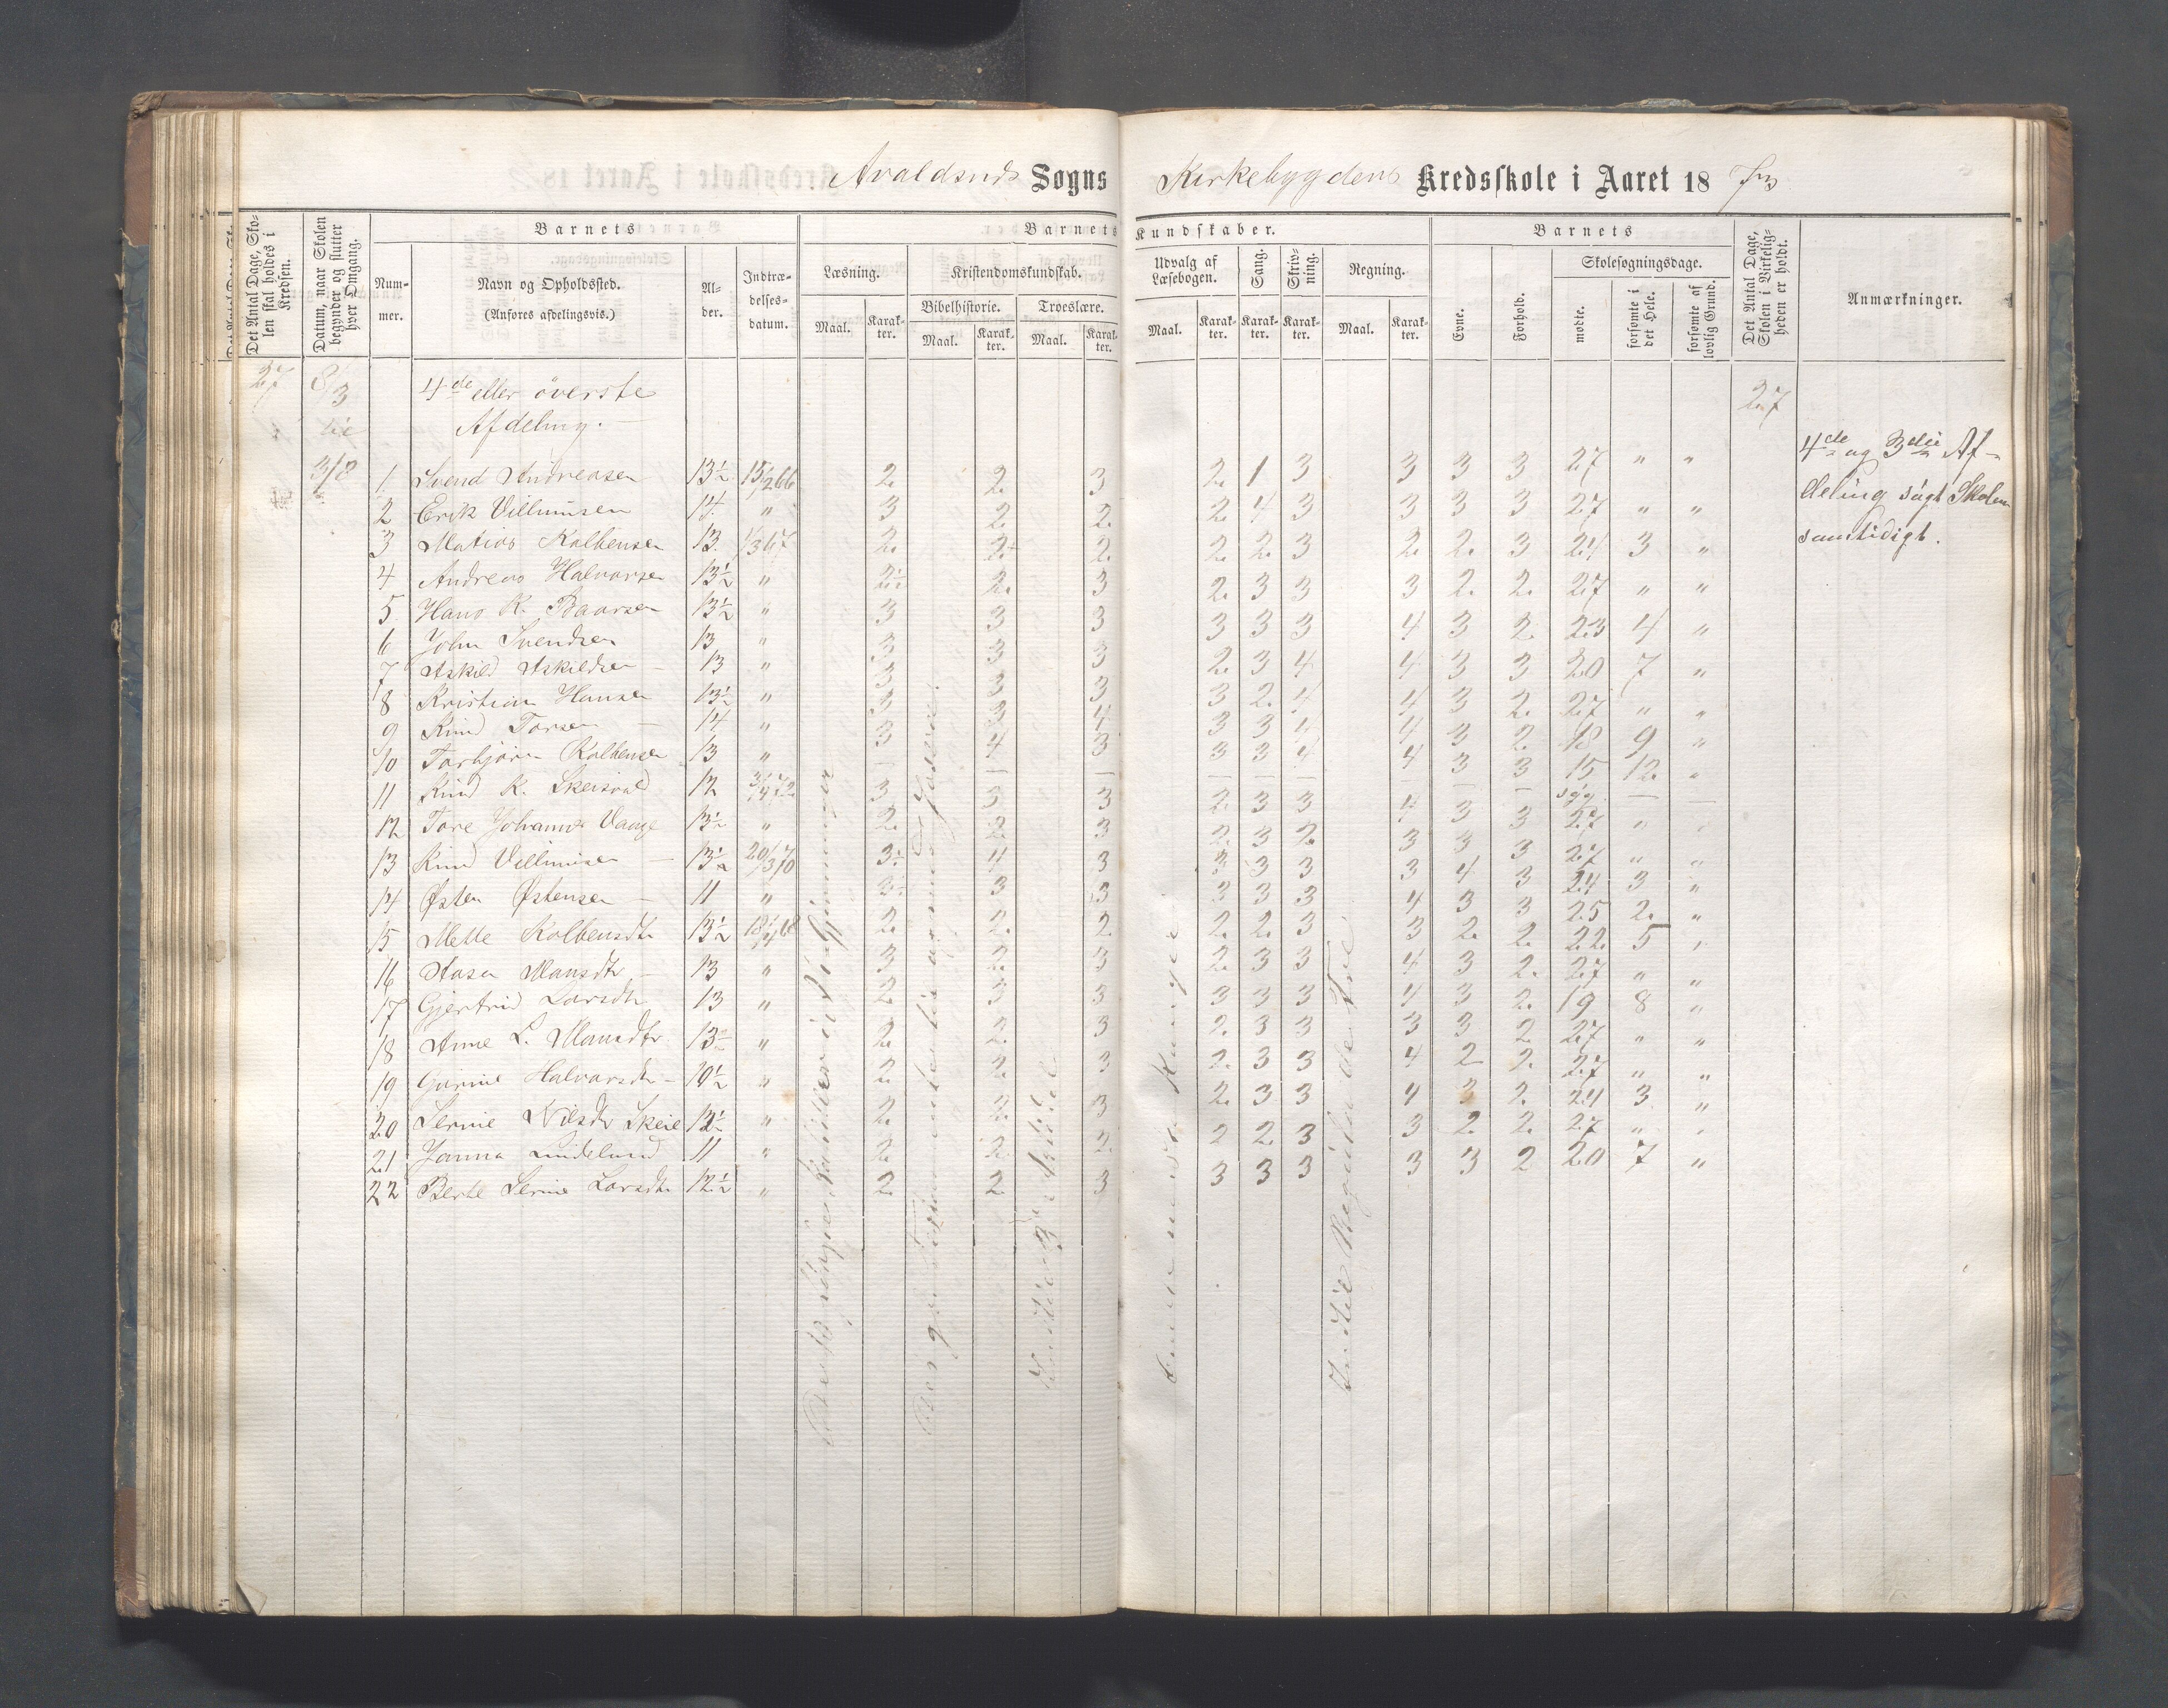 Avaldsnds Sogns Kirkebygdens Kredsskole i Aaret 1873
Det Antal Dage, Skolen skal holdes i Kredsen.
Datum, naar Skolen begynder og slutter hver Omgang.
Barnets
Nummer.
Navn og Opholdssted.
(Anføres afdelingsvis.)
Alder.
Indtrædelsesdatum.
Barnets Kundskaber.
Læsning.
Maal.
Karakter.
Kristendomskundskab.
Bibelhistorie.
Maal.
Karakter.
Troeslære.
Maal.
Karakter.
Udvalg af Læsebogen.
Maal.
Karakter.
Sang.
Karakter.
Skrivning.
Karakter.
Regning.
Maal.
Karakter.
Barnets
Evne.
Forhold.
Skolesøgningsdage.
mødte.
forsømte i det Hele.
forsømte af lovlig Grund.
Det Antal Dage, Skolen i Virkeligheden er holdt.
Anmærkninger.
27 8/3 4de eller överste 27
til Afdeling.
3/8
4de og 3die Af-
deling sögt Skolen
samtidigt.
1 Svend Andreasen 13½ 15/12 66 2 2 3 2 1 3 3 3 3 27 " "
2 Erik Villumsen 14 " 3 2 2 2 4 3 3 3 3 27 " "
3 Matias Kolbensen 13 1/3 67 2 2 2 2 2 3 2 2 3 24 3 "
4 Andreas Halvorsen 13½ " 2½ 2 3 2 3 3 3 2 2 27 " "
5 Hans K. Baarsen 13½ " 3 3 3 3 3 3 4 3 2 23 4 "
6 John Svendsen 13 " 3 3 3 2 3 4 4 3 3 20 7 "
7 Askild Askildsen 13 " 3 3 3 3 2 4 4 3 2 27 " "
8 Kristian Hansen 13½ " 3 3 4 3 3 4 4 3 2 18 9 "
9 Knud Torsen 14 " 3 4 3 3 3 4 4 3 3 15 12 "
10 Torbjörn Kolbensen 13 " — — — — — — — — — syg — —
11 Knud K. Skeisvold 12 3/4 72 3 3 3 2 3 3 4 3 3 27 " "
12 Tore Johannes Vaage 13½ " 2 2 3 2 3 2 3 3 3 27 " "
13 Knud Villumsen 13½ 20/3 70 3½ 4 3 3 3 3 3 4 3 24 3 "
14 Östen Östensen 11 " 3 3 3 3 3 4 3 3 25 2 "
15 Mette Kolbensdtr 13½ 18/4 68 2 2 2 2 2 3 3 2 2 22 5 "
16 Aasa Mansdtr 13 " 3 2 3 2 3 3 4 3 2 27 " "
17 Gjertrud Larsdtr 13 " 2 3 3 3 3 3 4 3 2 19 8 "
18 Anne L. Mansdtr 13½ " 2 2 3 2 3 3 3 3 2 27 " "
19 Gurine Halvorsdtr 10½ " 2 2 3 2 3 3 4 2 2 27 " "
20 Serine Nilsdtr Skeie 12½ " 2 2 3 2 3 3 4 3 2 24 3 "
21 Janna Lindelund 11 " 2 2 2 2 2 3 3 2 2 27 " "
22 Berte Serine Larsdtr 12½ " 2 2 3 3 3 3 3 3 2 20 7 "